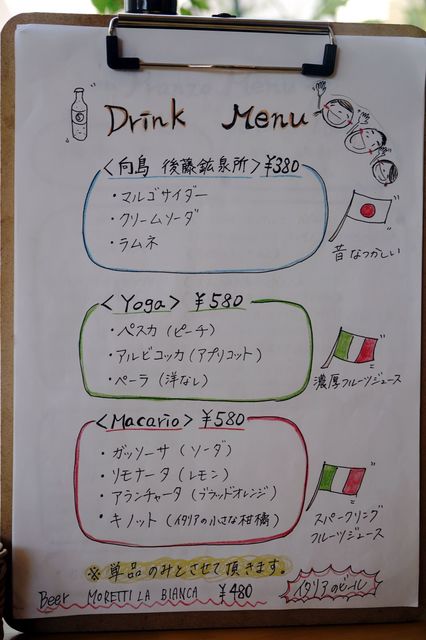 Drink Menu
<向島 後藤鉱泉所> ¥380
・マルゴサイダー
・クリームソーダ
・ラムネ
昔なつかしい
<Yoga> ¥580
・ペスカ(ピーチ)
・アルビコッカ(アプリコット)
・ペーラ(洋なし)
濃厚フルーツジュース
<Macario> ¥580
・ガッソーサ(ソーダ)
・リモナータ(レモン)
・アランチャータ(ブラッドオレンジ)
・キノット(イタリアの小さな柑橘)
スパークリング
フルーツジュース
※単品のみとさせて頂きます。
Beer MORETTI LA BIANCA ¥480
イタリアのビール